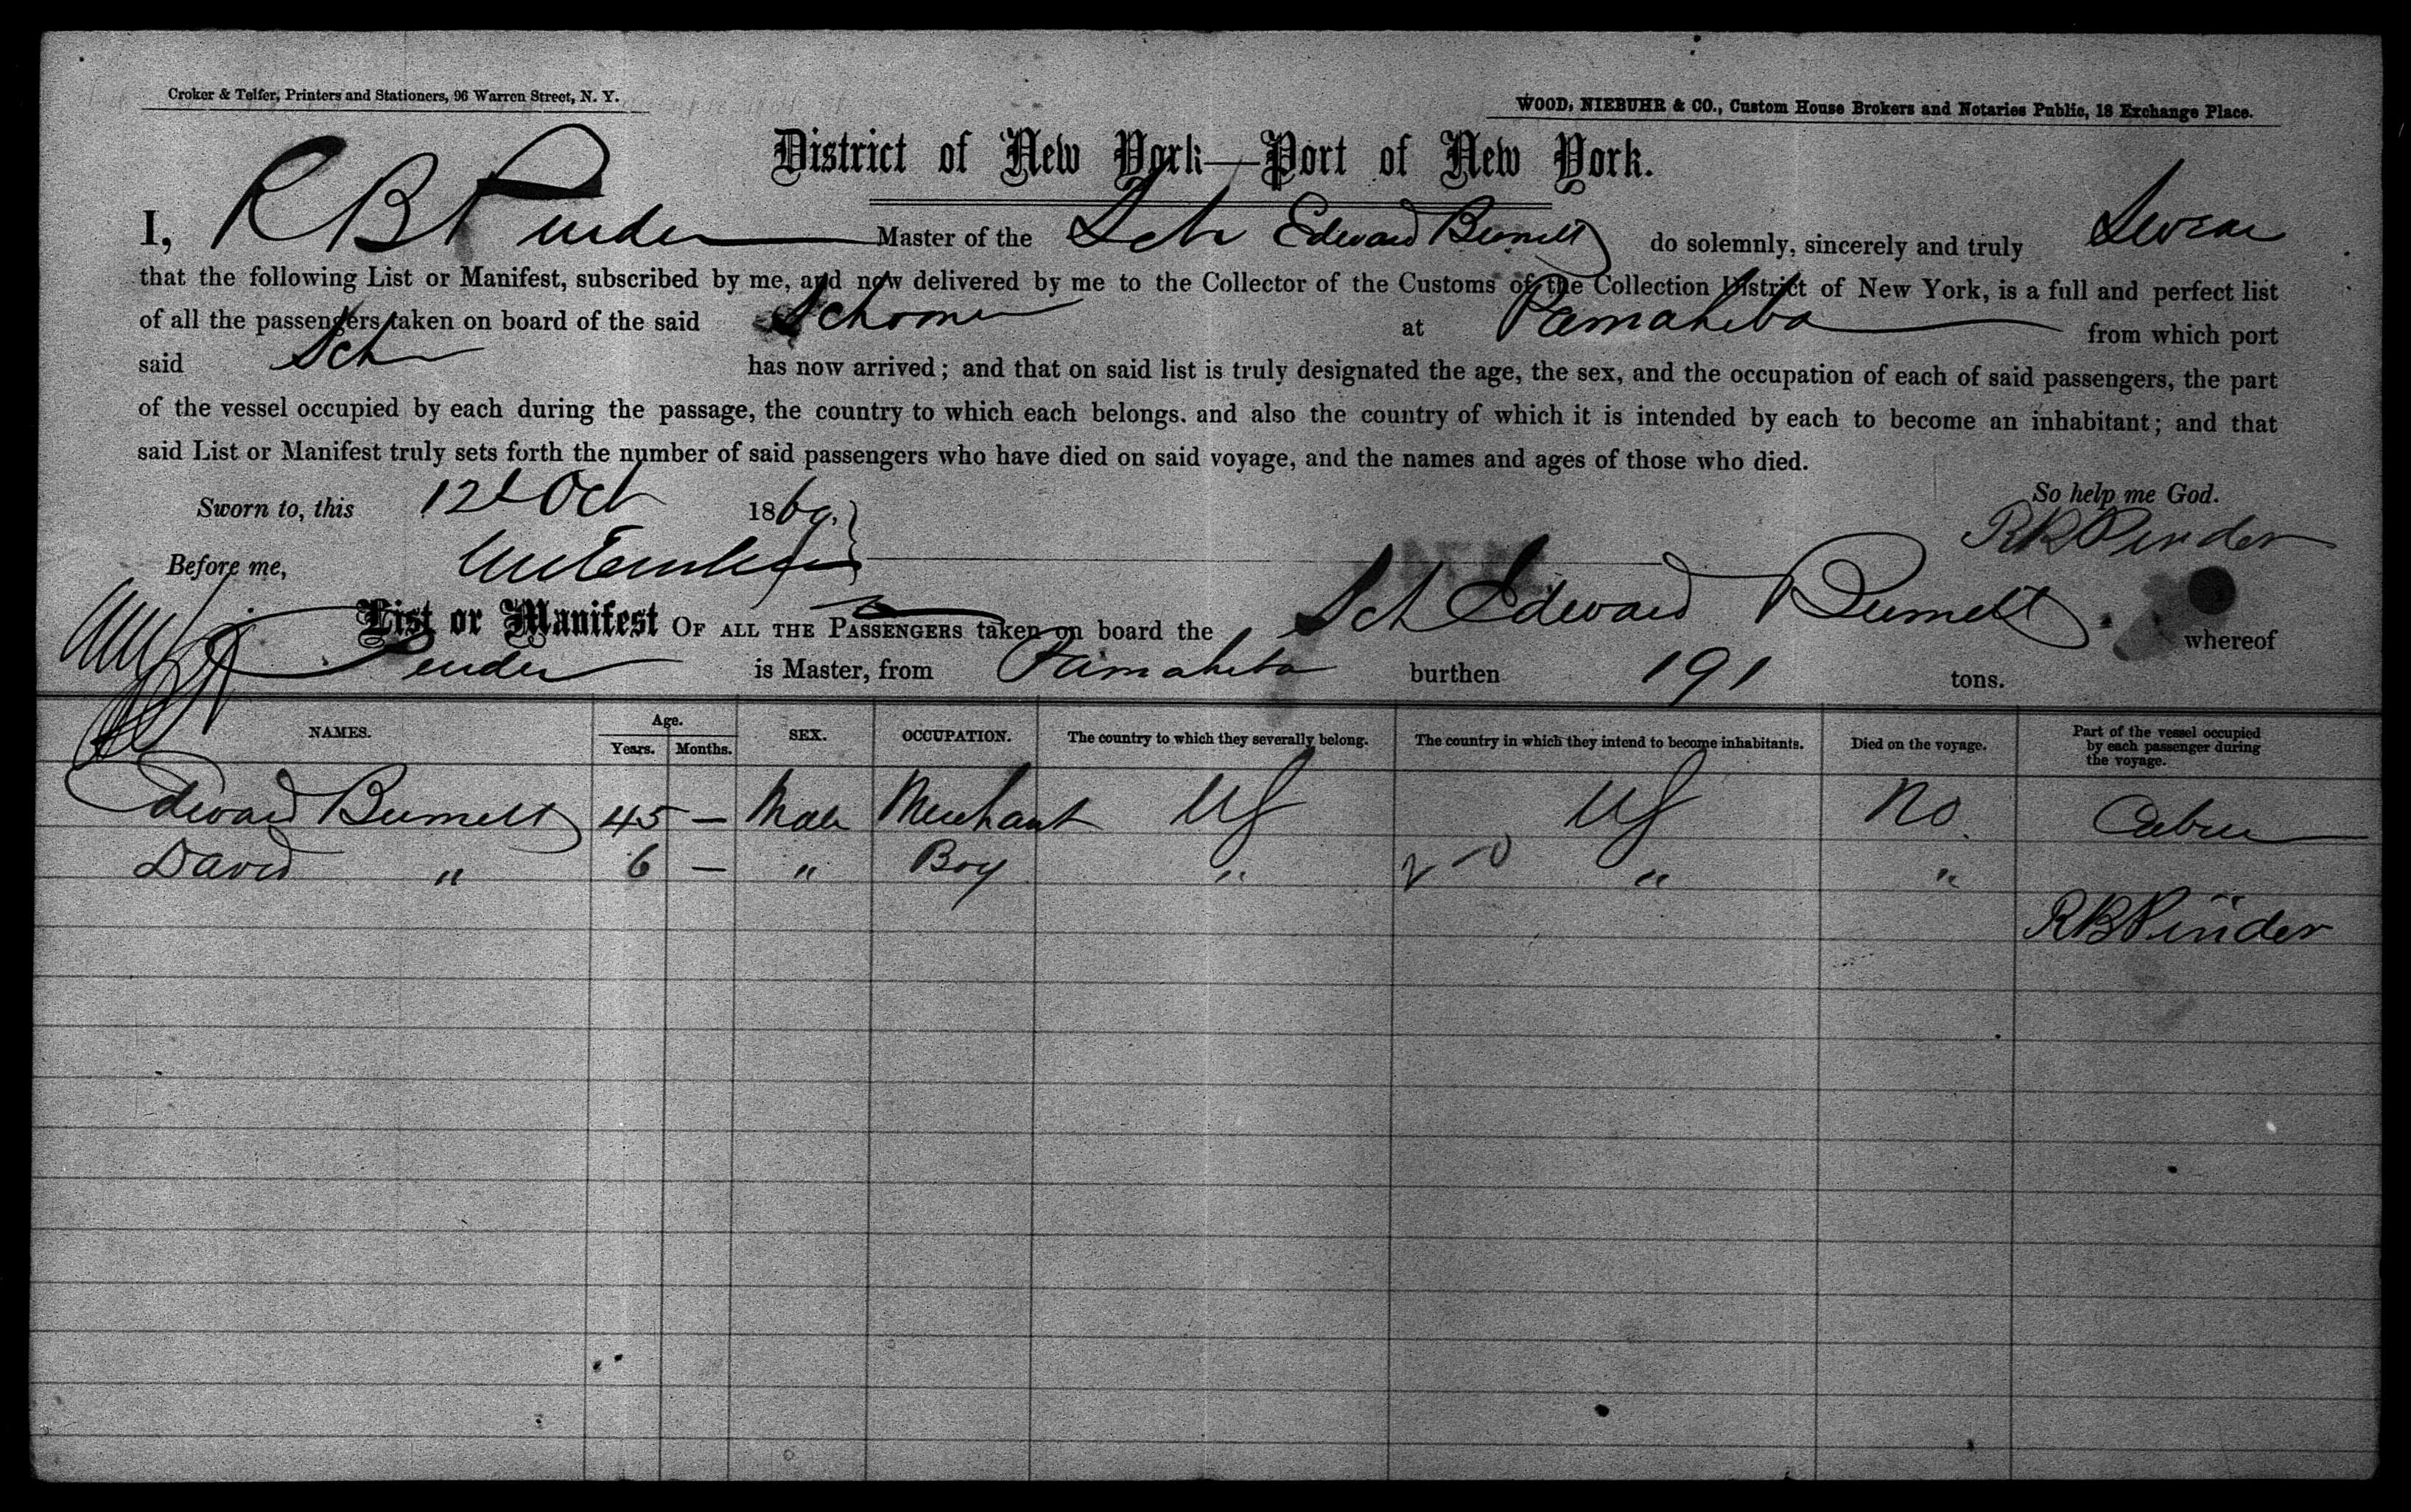 Croker & Telfer, Printers and Stationers, 96 Warren Street, N. Y.
WOOD, NIEBUHR & CO., Custom House Brokers and Notaries Public, 18 Exchange Place.
District of New York—Port of New York.
I, R B Pinder Master of the Sch Edward Burnett do solemnly, sincerely and truly Swear
that the following List or Manifest, subscribed by me, and now delivered by me to the Collector of the Customs of the Collection District of New York, is a full and perfect list
of all the passengers taken on board of the said Schooner at Pamahiba from which port
said Sch has now arrived; and that on said list is truly designated the age, the sex, and the occupation of each of said passengers, the part
of the vessel occupied by each during the passage, the country to which each belongs. and also the country of which it is intended by each to become an inhabitant; and that
said List or Manifest truly sets forth the number of said passengers who have died on said voyage, and the names and ages of those who died.
So help me God.
Sworn to, this 12t Oct 1869.
R B Pinder
Before me,
List or Manifest OF ALL THE PASSENGERS taken on board the Sch Edward Burnett whereof
Pinder is Master, from Pamahiba burthen 191 tons.
NAMES. Age. Years. Months. SEX. OCCUPATION. The country to which they severally belong. The country in which they intend to become inhabitants. Died on the voyage. Part of the vessel occupied by each passenger during the voyage.
Edward Burnett 45 — Male Merchant US US No. Cabin
David " 6 — " Boy " " "
R B Pinder